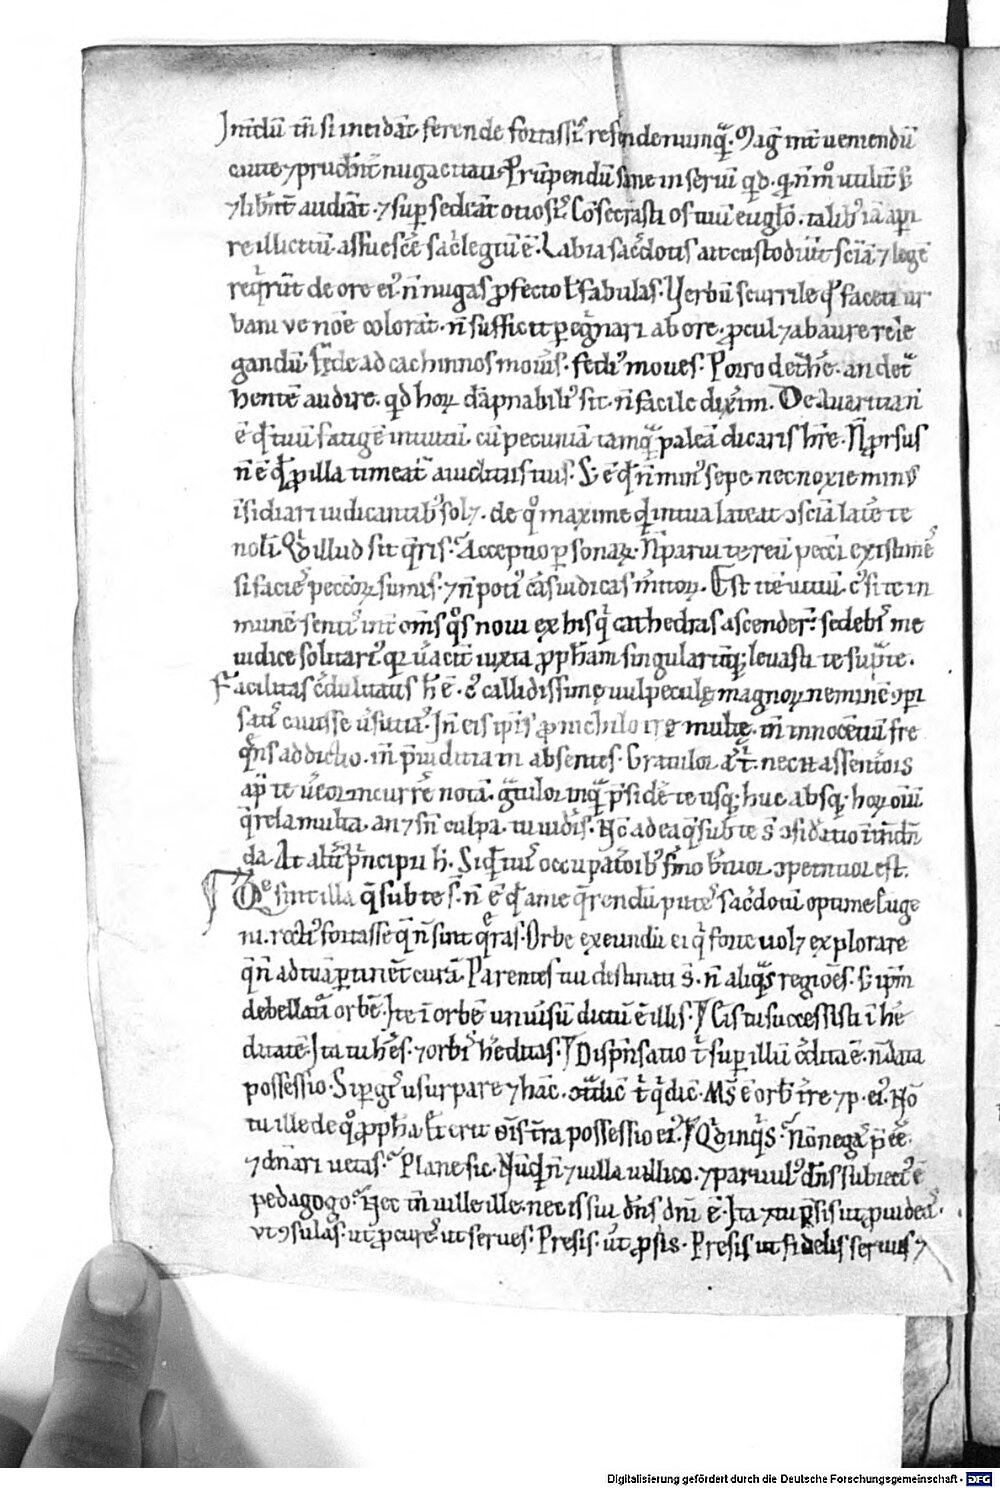 Int̄dū tn̄ si incidāt ferende fortassiˢ referende nūq̄. Mag̛ int̄ ueniendū
caute ⁊ prudn̄t nugacitati. Prūpendū sane in seriū qd. q̛ n̄ mº utilit̄ s̄
⁊ libn̄t audiāt. ⁊ sup̱sedeāt otiosis̛. Cōsecrasti os tuū eugl̄o. talib̛ iā api
re illicitū. assuesce̅ sac̄legiū ē. Labia sac̄dotis ait custodiūt sciā ⁊ legē
req̄rūt de ore ei̛ n̄ nugas ꝓfecto ł fabulas. Verbū scurrile qd̛ faceti ur
bani ve noīe colorāt. n̄ sufficit peg̛nari ab ore. ꝓcul ⁊ ab aure rele
gandū. Fede ad cachinnos moūis. fedi̛ moues. Porro det̛he̅. an det̛
hentē audire. qd hoꝝ dāpnabili̛ sit. n̄ facile dixīm. De auaritia n̄
ē qd̛ tuū fatigē intuitū. cū pecuniā tamq̄ paleā dicaris h̄re. N̄ ꝓrsus
n̄ ē qd̛ ꝓ illa timeat̛ iudiciis tuis. S̄ ē qd̛ n̄ min̛ sepe nec noxie min̛
īsidiari iudicantib̛ sol⁊. de qº maxime qd̛ in tua lateat ɔsciā late̅ te
noli. Quid illud sit q̄ris. Acceptio ꝑsonaꝝ. N̄ parui te reū pecc̄i existime̅
si facies peccōꝝ sumis. ⁊ n̄ poti̛ cā̅s iudicas m̄itoꝝ. Est itē uitiū. c̛ si te in
munē sentis̛ int̄ om̄s qºs noui ex his q̛ cathedras ascender̄. sedeb̛ me
iudice solitari̛ q̛ u̅acit̄ iuxta ꝓph̄am singularit̄q; leuasti te sup̄ te.
Facilitas c̄dulitatis h̄ ē. c̛ callidissimę uulpeculę magnoꝝ neminē ꝯp̱i
satis̛ cauisse u̅sutias̛. Inde eis ip̄is ꝓ nichilo irę multę. in̄ innocētiū fre
q̄ns addictio. in̄ p̄iuditia in absentes. Gratulor a̅t. nec ut assentōis
ap̱ te u̅eor incurre̅ notā. g̛tulor inq̄ p̄sidē te usq; huc absq; hoꝝ oīū
q̄rela multa. an ⁊ sn̄ culpa. tu uid̛is. Nc̄ ad ea q̛ sub te s̄ ɔsid̛atio int̄dn̄
da. At alt̄i̛ p̛ncipii h̄. Siqd̛ tuis̛ occupatōib̛ s̄mo b̛uior ɔpetituor est.
Que sint illa q̄ sub te s̄. n̄ ē qd̛ a me q̄rendū putes̛ sac̄dotū optime Euge
ni. recti̛ fortasse q̄ n̄ sint q̄ras. Orbe exeundū ei q̛ forte uol⁊ explorare
q̄ n̄ ad tuā ꝑtinēt curā. Parentes tui destinati s̄. n̄ aliq̛s regiōes. s̄ ip̄m
debellat̛i orbē. Ite ī orbē uniu̅sū dictū ē illis. Cis tu successisti ī he̅
ditatē. Ita tu he̅s. ⁊ orbis he̅ditas. Disp̄nsatio t̛ sup̱ illū c̄dita ē. n̄ data
possessio. Si ꝑg̛s usurpare ⁊ hāc. ɔt̛dic̄ t̛ q̛ dic̄. Ms̄ ē orb̛ t̄re ⁊ p. ei̛. Nō
tu ille de qº ꝓph̄a. Et erit oīs t̄ra possessio ei̛. Qd̛ inq̛s. Nō negas̛ p̄ ee̅.
⁊ dn̄ari uetas. Plane sic. Nūqd̛ n̄ ⁊ uilla uillico. ⁊ paruul̛ dn̄s subiect̛ ē
pedagogo. Nec tn̄ uille ille. nec is sui dn̄s dn̄i ē. Ita ⁊ tu p̄sis ut ꝓuideas̛.
ut ꝯsulas. ut ꝓcures̛. ut serues. Presis. ut ꝓsis. Presis ut fidelis seruus ⁊
Digitalisierung gefördert durch die Deutsche Forschungsgemeinschaft - DFG